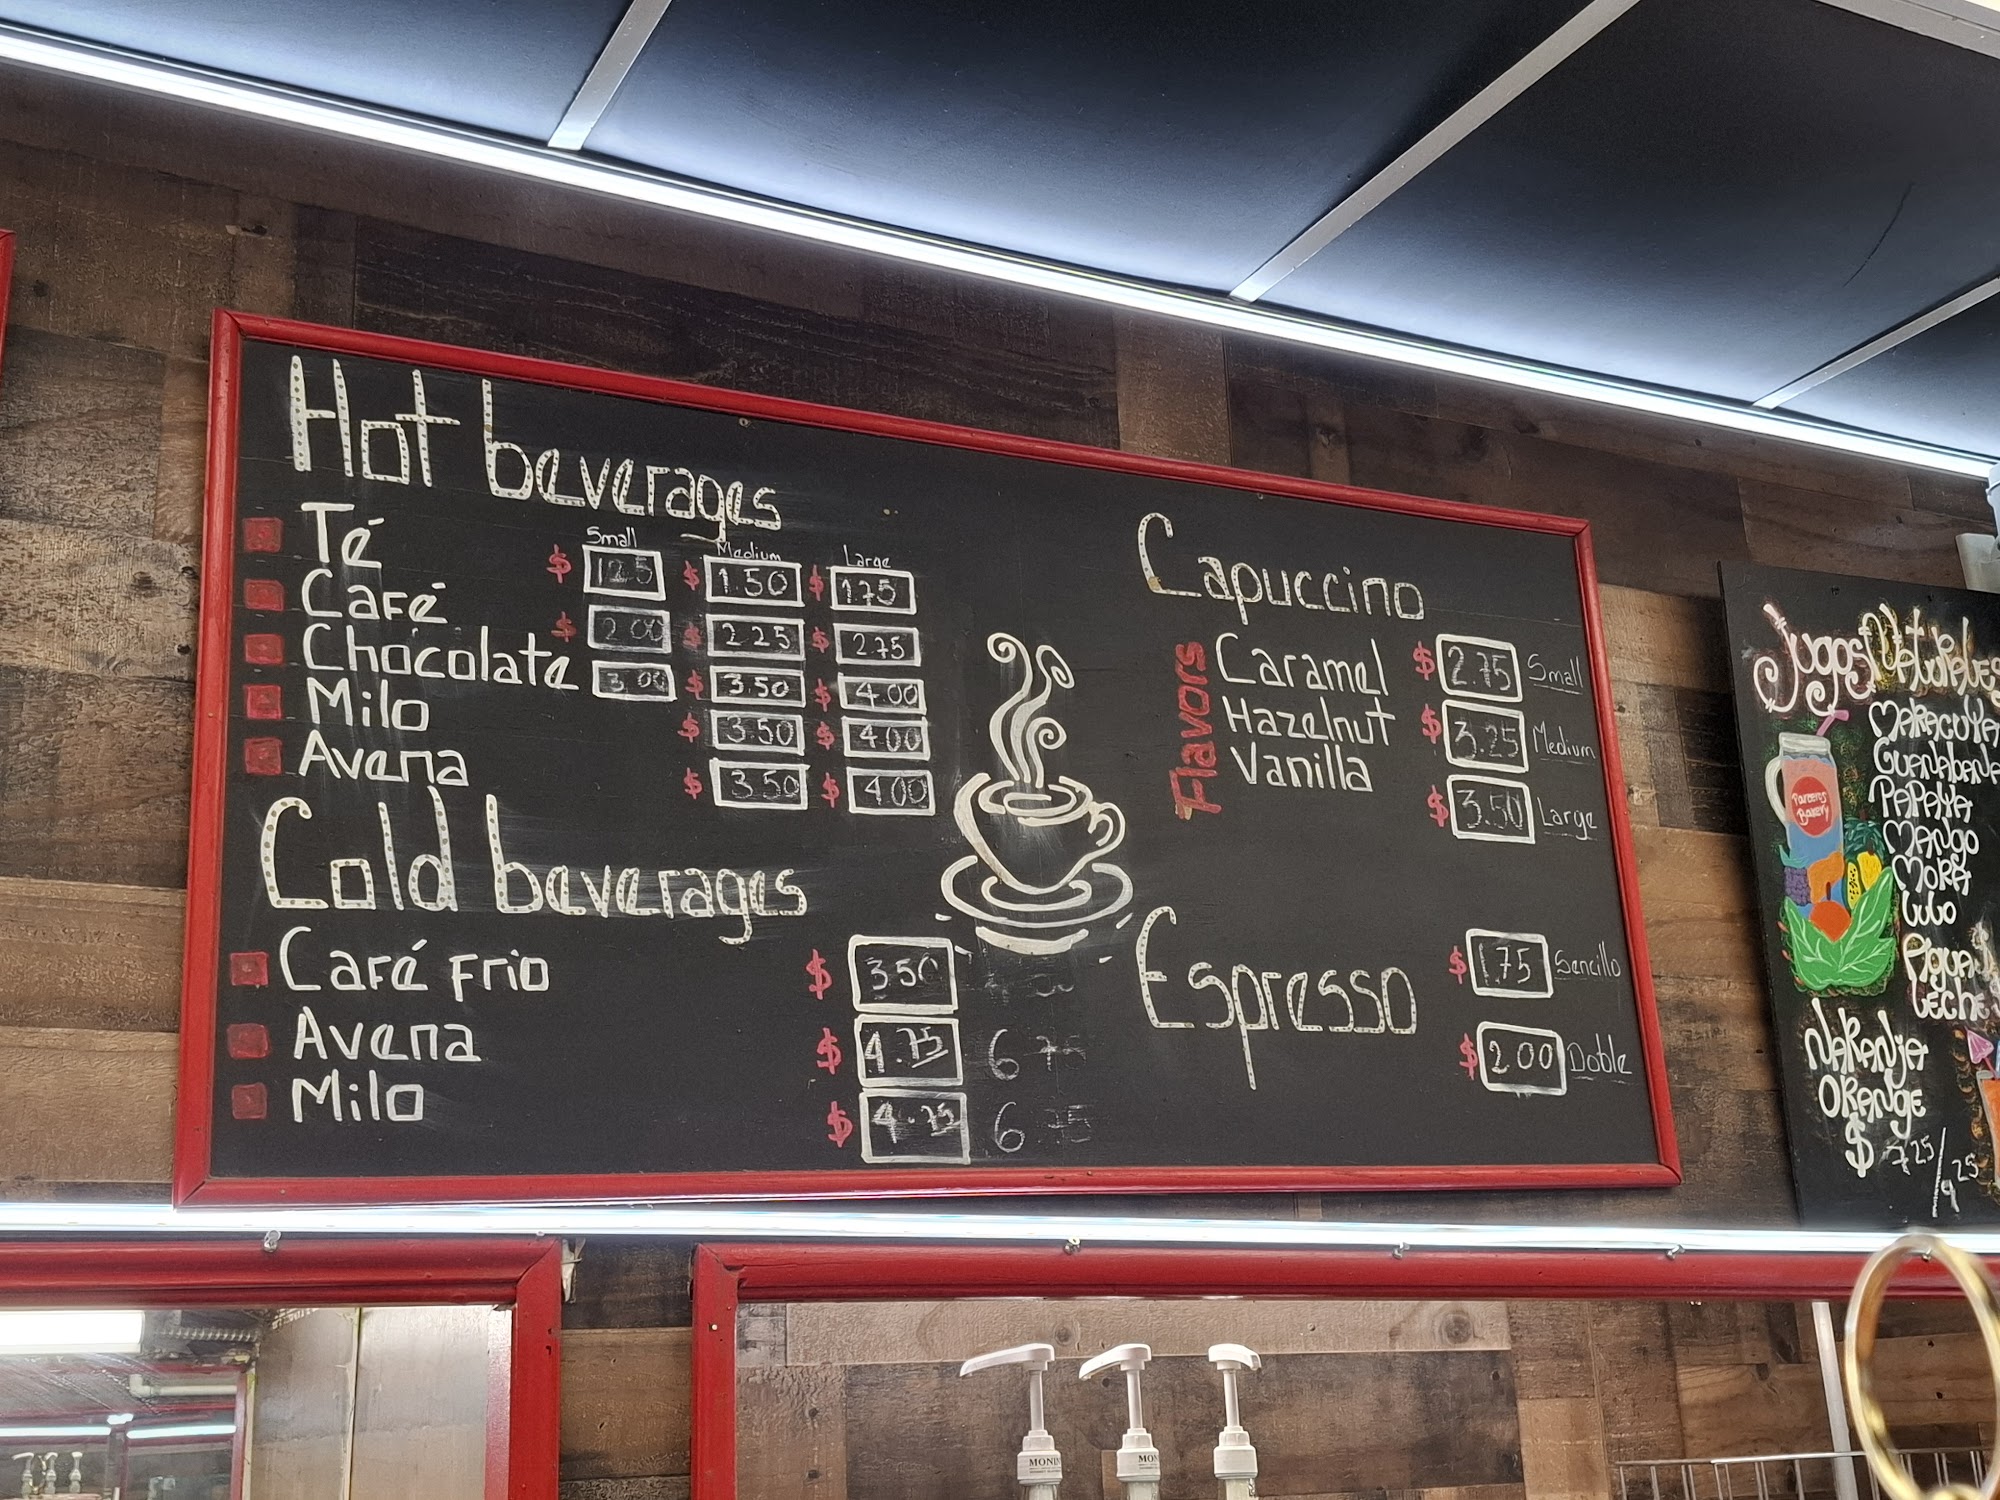 Hot beverages
Small Medium Large
Té $ 1.25 $ 1.50 $ 1.75
Café $ 2.00 $ 2.25 $ 2.75
Chocolate 3.00 $ 3.50 $ 4.00
Milo $ 3.50 $ 4.00
Avena $ 3.50 $ 4.00
Cold beverages
Café Frio $ 3.50
Avena $ 4.75 6.75
Milo $ 4.75 6.75
Capuccino
Flavors
Caramel $ 2.75 Small
Hazelnut $ 3.25 Medium
Vanilla $ 3.50 Large
Espresso
$ 1.75 Sencillo
$ 2.00 Doble
Jugos Naturales
Maracuya
Guanabana
Papaya
Mango
Mora
Lulo
Agua
Leche
Parceros
Bakery
Naranja
Orange
$ 7 25 / 9 25